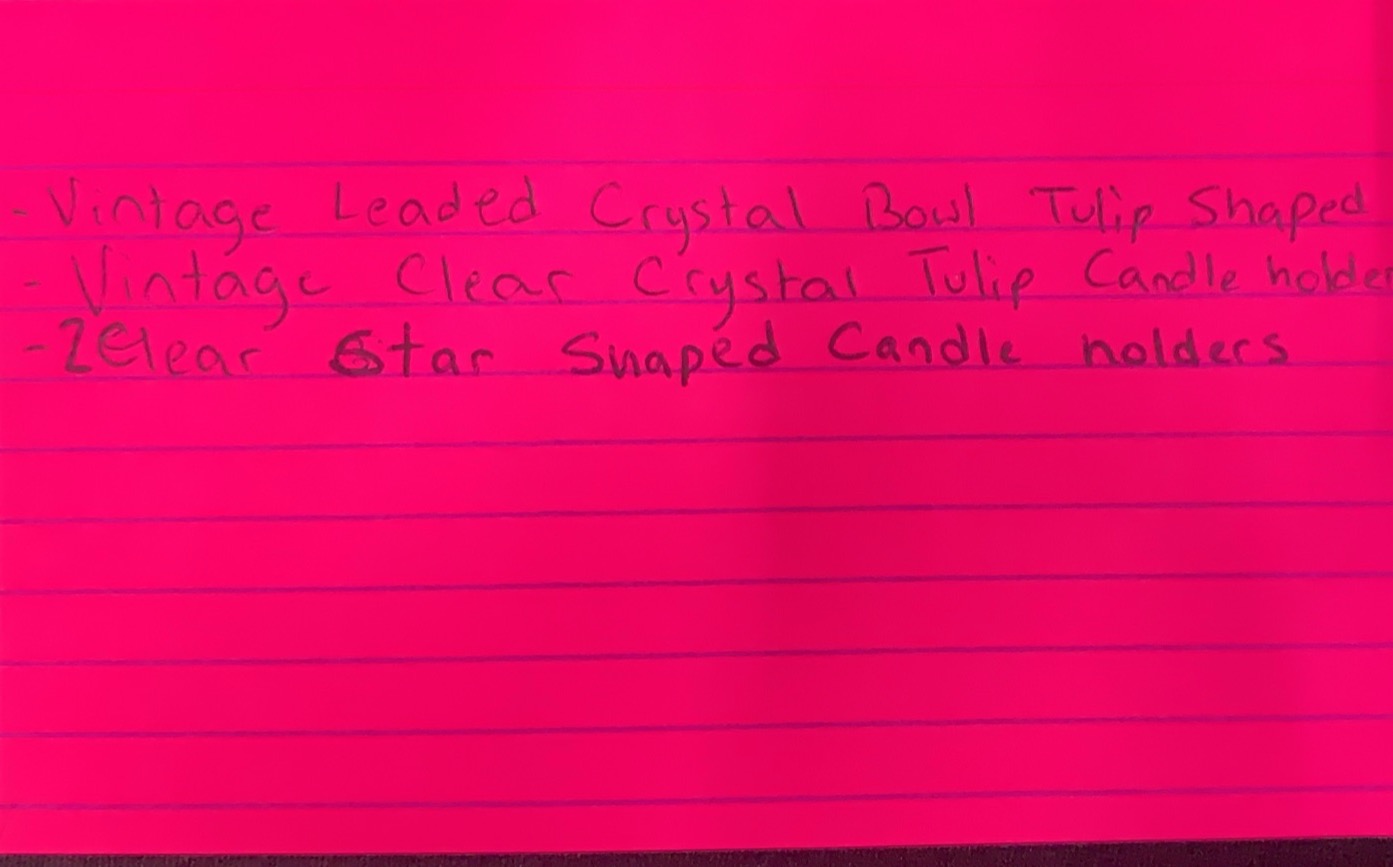 - Vintage Leaded Crystal Bowl Tulip Shaped
- Vintage Clear Crystal Tulip Candle holder
- 2 Clear Star Shaped Candle holders